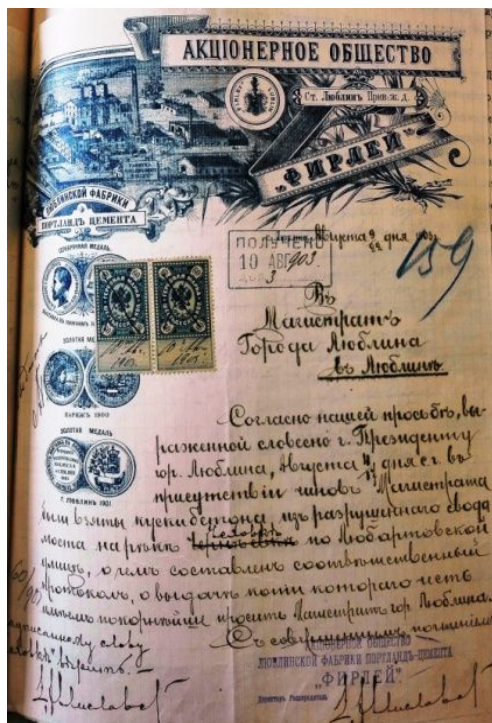 АКЦІОНЕРНОЕ ОБЩЕСТВО
Ст. Люблинъ Прив. ж. д.
"ФИРЛЕЙ"
ЛЮБЛИНСКОЙ ФАБРИКИ
ПОРТЛАНДЪ ЦЕМЕНТА
Августа 9/22 дня 903
ПОЛУЧЕНО
10 АВГ 903
159
СЕРЕБРЯННАЯ МЕДАЛЬ
ЗОЛОТАЯ МЕДАЛЬ
ПАРИЖЪ 1900
ЗОЛОТАЯ МЕДАЛЬ
Г. ЛЮБЛИНЪ 1901
Въ
Магистратъ
Города Люблина
въ Люблинѣ.
Согласно нашей просьбѣ, вы-
раженной словесно г. Президенту
гор. Люблина, Августа дня с.г. въ
присутствіи чиновъ Магистрата
были взяты куски бетона изъ разрушеннаго свода
моста на рѣкѣ по Любартовской
улицѣ, о чемъ составленъ соотвѣтственный
протоколъ, о выдачѣ копіи котораго честь
имѣемъ покорнѣйше просить Магистратъ гор. Люблина.
Съ совершеннымъ почтеніемъ
слову
вѣрить. —
АКЦІОНЕРНОЕ ОБЩЕСТВО
ЛЮБЛИНСКОЙ ФАБРИКИ ПОРТЛАНДЪ-ЦЕМЕНТА
"ФИРЛЕЙ".
Директоръ Распорядитель